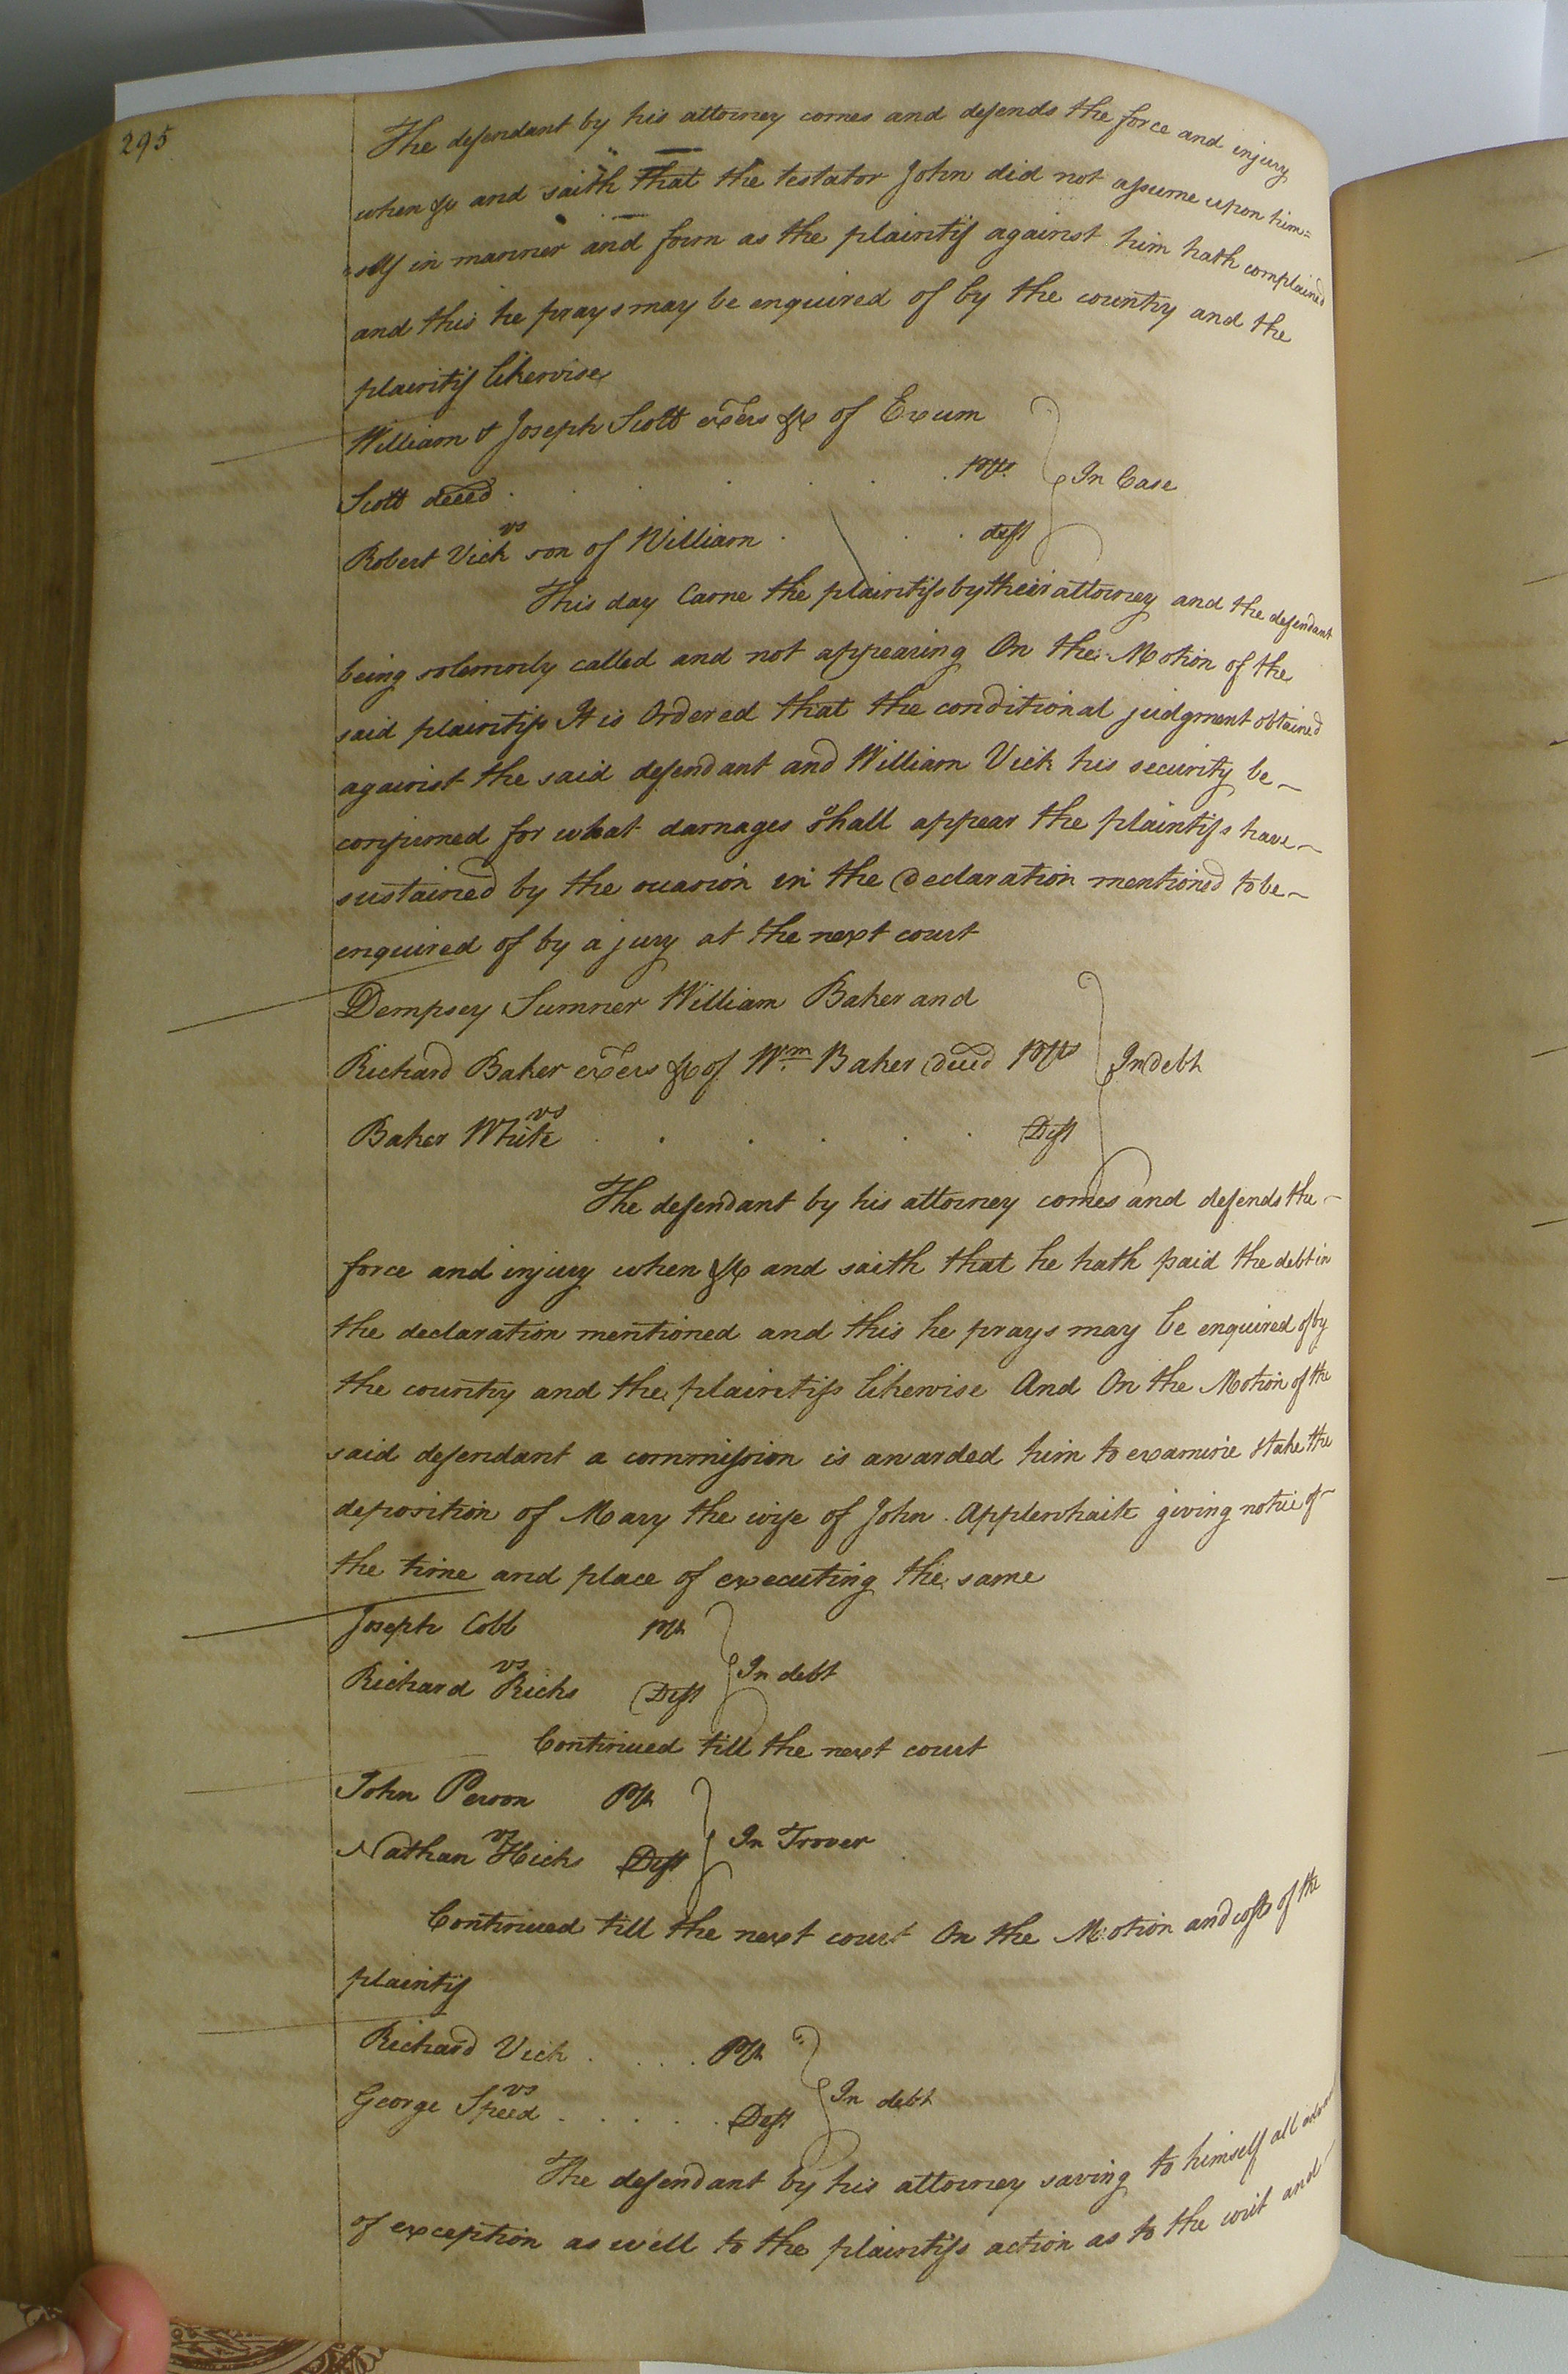 295
The defendant by his attorney comes and defends the force and injury
when &c and saith that the testator John did not assume upon him=
=self in manner and form as the plaintif against him hath complained
and this he prays may be enquired of by the country and the
plaintif likewise
William & Joseph Scott exers &c of Exum
Scott deced . . . . . . Pltfs } In Case
vs
Robert Vick son of William . . . deft
This day Came the plaintifs by their attorney and the defendant
being solemnly called and not appearing On the Motion of the
said plaintifs It is Ordered that the conditional judgment obtained
against the said defendant and William Vick his security be
confirmed for what damages shall appear the plaintifs have
sustained by the ocasion in the Declaration mentioned to be
enquired of by a jury at the next court
Dempsey Sumner William Baker and
Richard Baker exers &c of Wm Baker deced Pltfs } In debt
vs
Baker White . . . . . . Deft
The defendant by his attorney comes and defends the
force and injury when &c and saith that he hath paid the debt in
the declaration mentioned and this he prays may be enquired of by
the country and the plaintifs likewise And On the Motion of the
said defendant a commission is awarded him to examine & take the
deposition of Mary the wife of John Applewhaite giving notice of
the time and place of executing the same
Joseph Cobb Plt } In debt
vs
Richard Ricks Deft
Continued till the next court
John Person Plt } In Trover
vs
Nathan Hicks Deft
Continued till the next court On the Motion and costs of the
plaintif
Richard Vick . . . . Plt } In debt
vs
George Speed . . . . . Deft
The defendant by his attorney saving to himself all
of exception as well to the plaintifs action as to the writ and